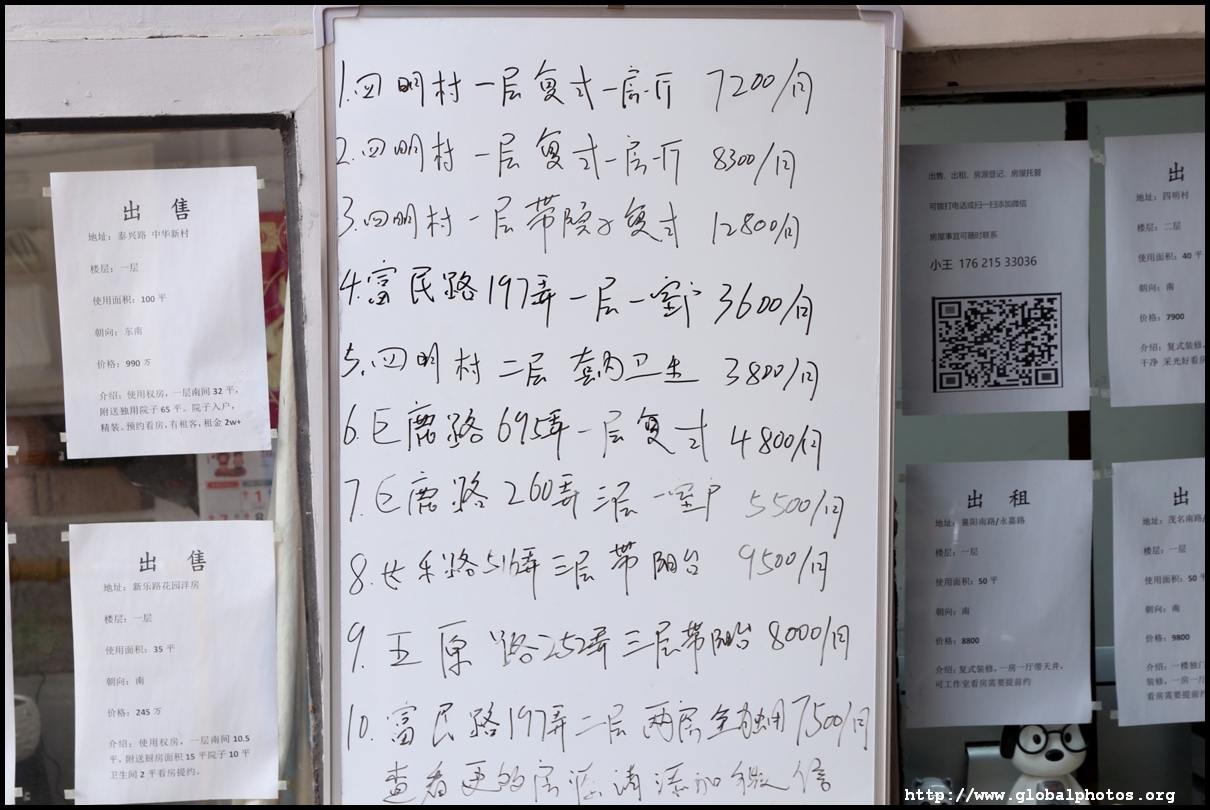 出 售
地址：泰兴路 中华新村
楼层：一层
使用面积：100 平
朝向：东南
价格：990 万
介绍：使用权房，一层南间 32 平，
附送独用院子 65 平。院子入户，
精装。预约看房，有租客，租金 2w+
出 售
地址：新乐路花园洋房
楼层：一层
使用面积：35 平
朝向：南
价格：245 万
介绍：使用权房，一层南间 10.5
平，附送厨房面积 15 平院子 10 平
卫生间 2 平看房提约。
1.四明村一层复式一房一厅 7200/月
2.四明村一层复式一房一厅 8300/月
3.四明村一层带院子复式 12800/月
4.富民路197弄一层一室户 3600/月
5.四明村二层套内卫生 3800/月
6.巨鹿路695弄一层复式 4800/月
7.巨鹿路260弄三层一室户 5500/月
8.长乐路516弄三层带阳台 9500/月
9.五原路252弄三层带阳台 8000/月
10.富民路197弄二层两房全独用7500/月
查看更多房源请添加微信
出售、出租、房源登记、房屋托管
可拨打电话或扫一扫添加微信
房屋事宜可随时联系
小王 176 215 33036
出 租
地址：襄阳南路/永嘉路
楼层：一层
使用面积：50 平
朝向：南
价格：8800
介绍：复式装修，一房一厅带天井，
可工作室看房需要提前约
出
地址：四明村
楼层：二层
使用面积：40 平
朝向：南
价格：7900
介绍：复式装修，
干净 采光好看房
出
地址：茂名南路/
楼层：一层
使用面积：50 平
朝向：南
价格：9800
介绍：一楼独门
装修，一房一厅
看房需要提前约
http://www.globalphotos.org